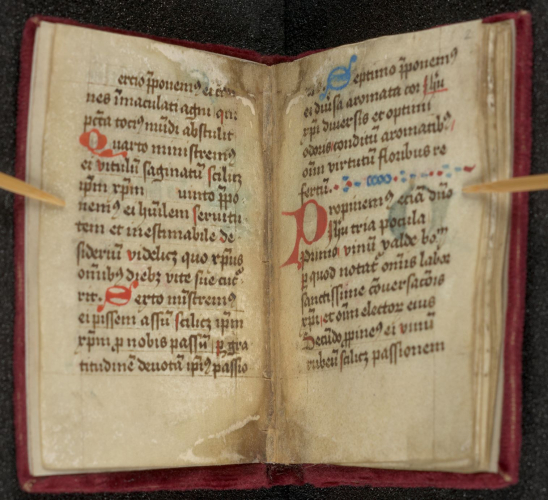 ercio ꝓponemꝰ ei co
nes īmaculati agni qui
pctā tociꝰ mūdi abstulit
Quarto ministremꝰ
ei vitulū saginatū scilicz
ipm̄ xp̄m uinto ꝓpo
nemꝰ ei huīlem seruitu
tem et inestimabile de
sideriū videlicz quo xp̄us
om̄ibꝰ diebꝫ vite sue cuc
rit. Sexto mīstremꝰ
ei pissem assū scilicz ipm̄
xp̄m ꝓ nobis passū ꝑ gra
titudinē deuotā ipiꝰ passio
Septimo ꝓponemꝰ
ei diūsa aromata co
xp̄i diuersis et optimi
odoris conditū aromatibꝰ
oīm virtutū floribus re
fertū.
Propinemꝰ eciā dn̄o
ih̄u tria pocula
Primo vinū valde bo
ꝑ quod notat om̄is labor
sanctissime cōuersacōis
xp̄i et oīm elector eius
Secūdo ꝓpinemꝰ ei vinū
rubeū scilicz passionem